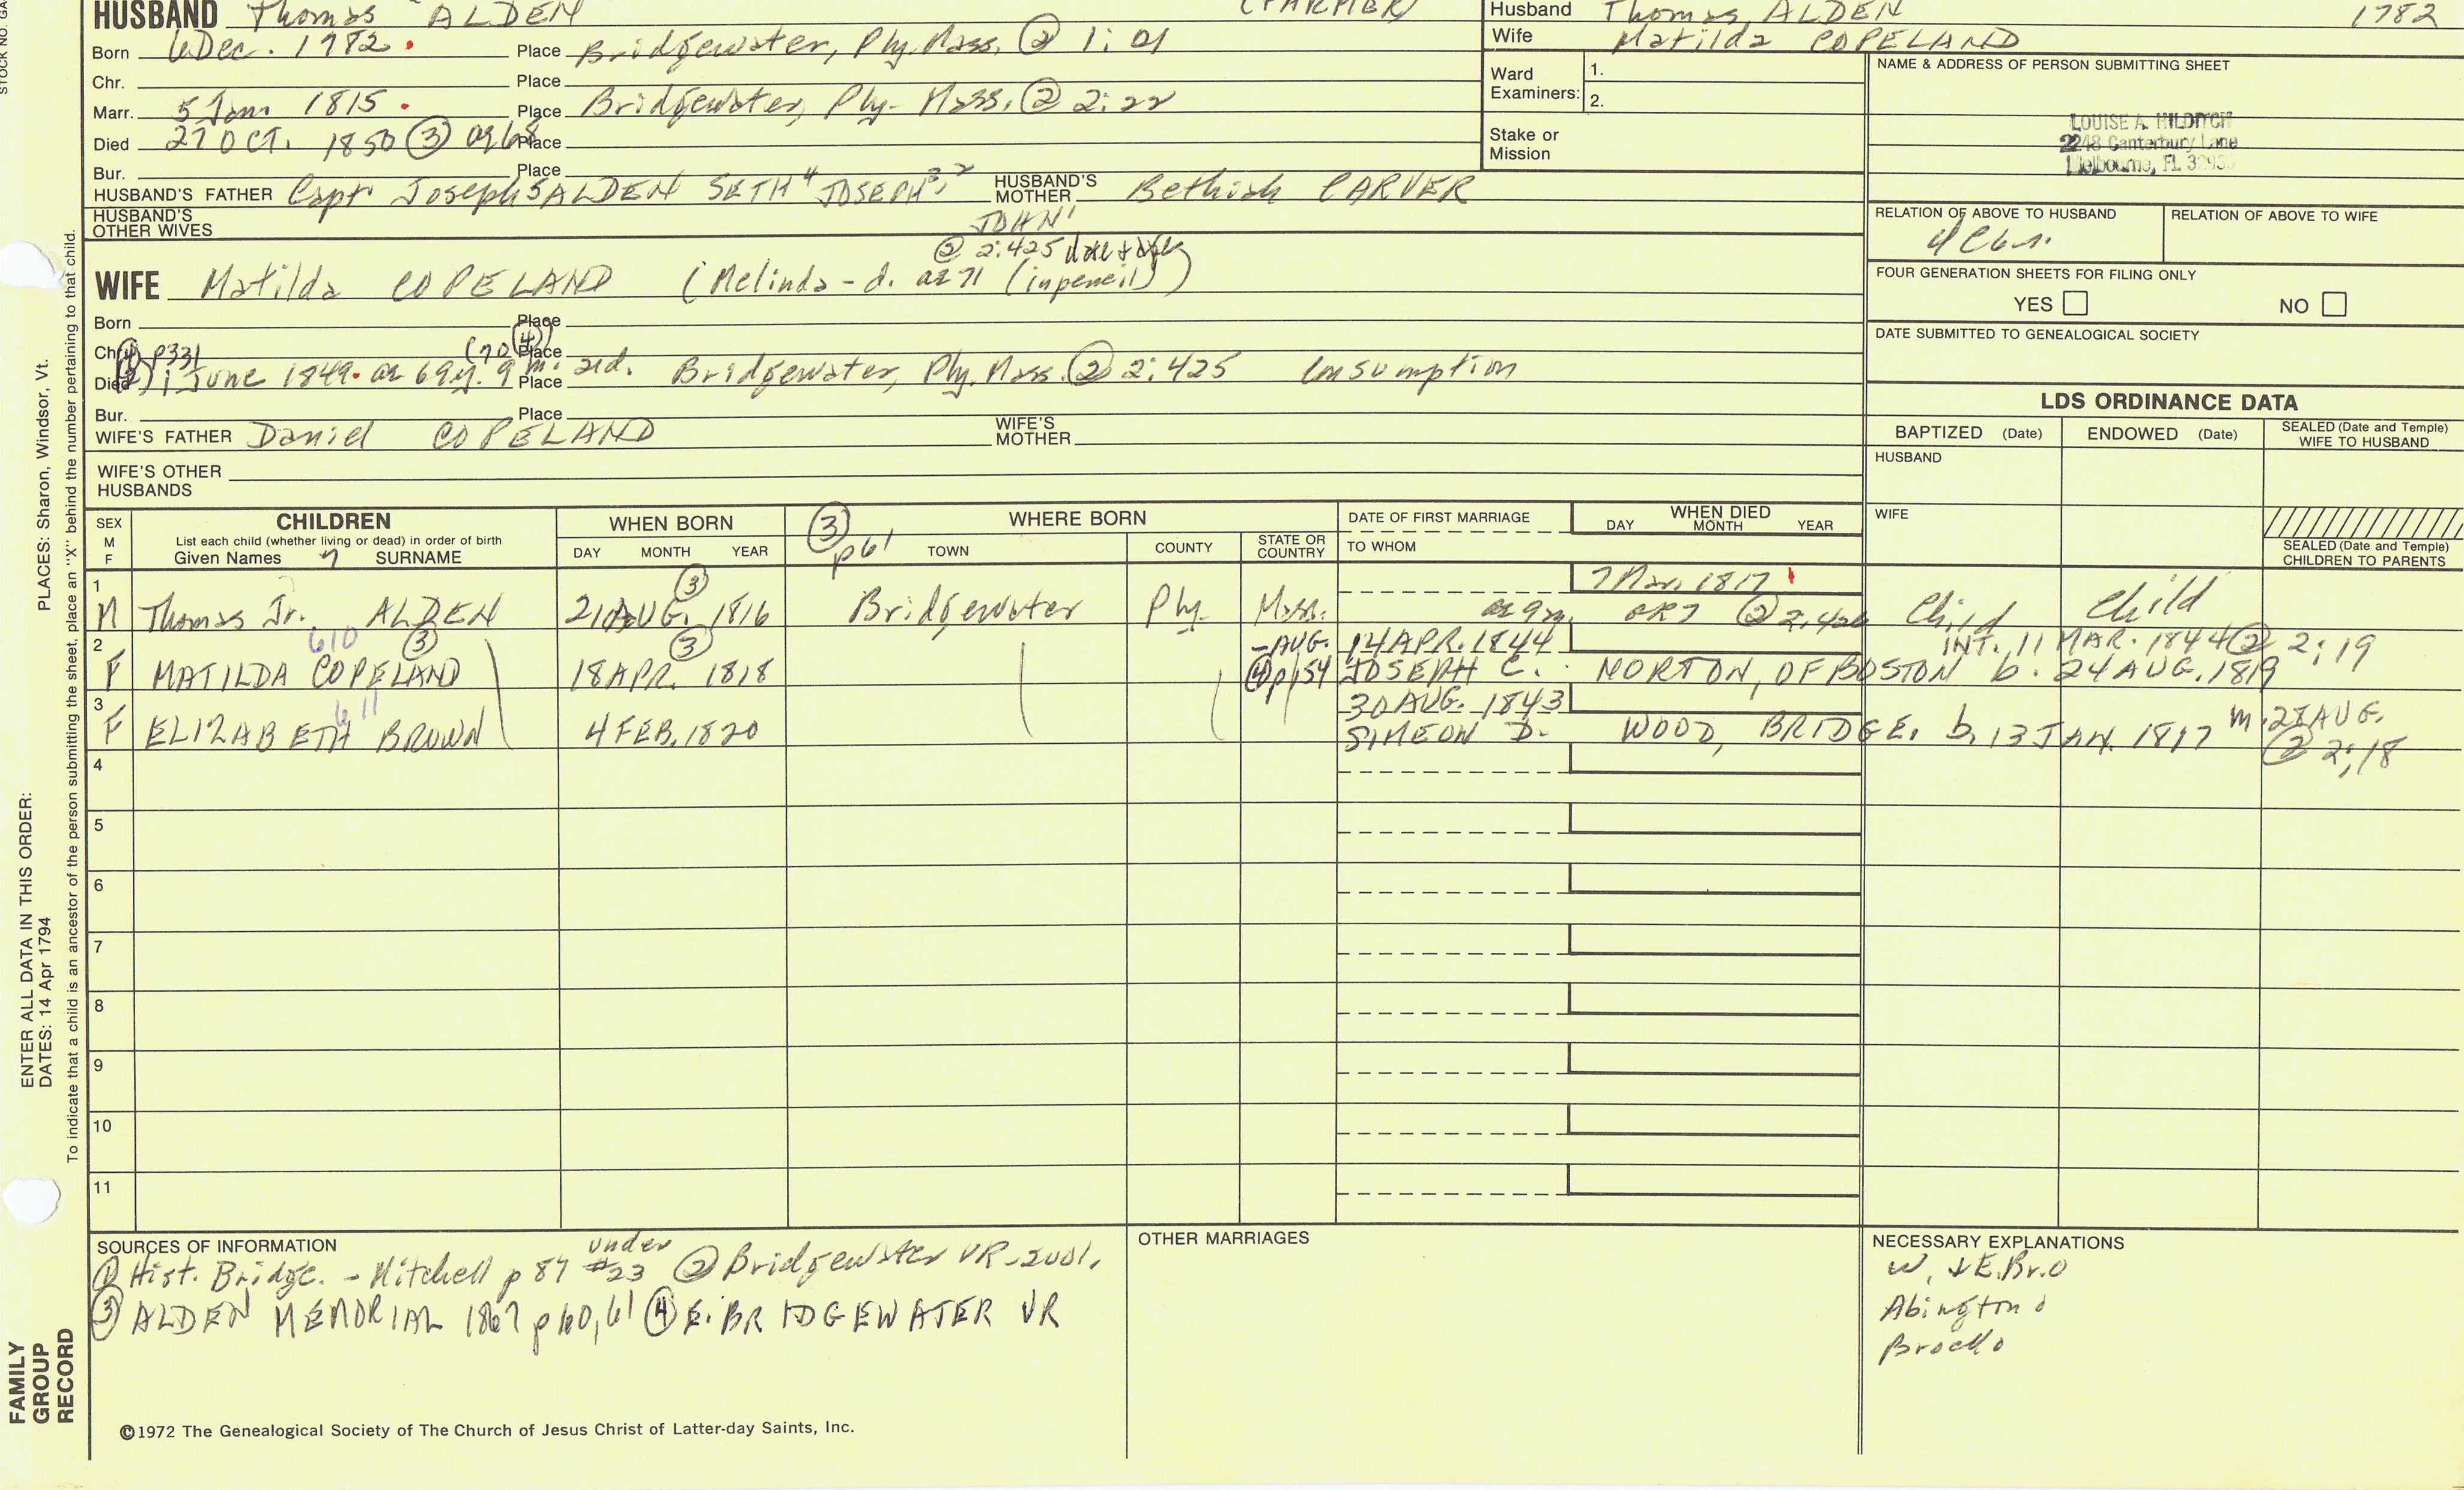 STOCK NO. GA
HUSBAND Thomas ALDEN (FARMER)
Husband Thomas ALDEN 1782
Wife Matilda COPELAND
Born 6 Dec. 1782. Place Bridgewater, Ply. Mass, ② 1: 01
Chr. Place
Marr. 5 Jan 1815. Place Bridgewater, Ply- Mass. ② 2: 22
Died 27 OCT. 1850 ③ ae 68 Place
Bur. Place
Ward Examiners: 1.
2.
Stake or Mission
NAME & ADDRESS OF PERSON SUBMITTING SHEET
LOUISE A. HILDITCH
2248 Canterbury Lane
Melbourne, FL 32935
HUSBAND'S FATHER Capt Joseph5 ALDEN SETH4 JOSEPH3,2 JOHN1
HUSBAND'S MOTHER Bethiah CARVER
HUSBAND'S OTHER WIVES
RELATION OF ABOVE TO HUSBAND
RELATION OF ABOVE TO WIFE
② 2:425 date +
WIFE Matilda COPELAND (Melinda - d. ae 71 (in pencil))
FOUR GENERATION SHEETS FOR FILING ONLY
YES NO
Born Place
Chr. ④ p331 (70 ④) Place
Died ② 1 June 1849. ae 69y. 9 m. 2d. Place Bridgewater, Ply. Mass. ② 2:425 Consumption
DATE SUBMITTED TO GENEALOGICAL SOCIETY
Bur. Place
WIFE'S FATHER Daniel COPELAND
WIFE'S MOTHER
WIFE'S OTHER HUSBANDS
LDS ORDINANCE DATA
BAPTIZED (Date) ENDOWED (Date) SEALED (Date and Temple) WIFE TO HUSBAND
HUSBAND
WIFE
SEALED (Date and Temple) CHILDREN TO PARENTS
SEX M F
CHILDREN
List each child (whether living or dead) in order of birth
Given Names SURNAME
WHEN BORN
DAY MONTH YEAR
③ p61
WHERE BORN
TOWN COUNTY STATE OR COUNTRY
DATE OF FIRST MARRIAGE
TO WHOM
WHEN DIED
DAY MONTH YEAR
1 M Thomas Jr. ALDEN 21 AUG. 1816 ③ Bridgewater Ply- Mass. 7 Mar. 1817 ae 9m. OR 7 ② 2,426 Child Child
610 ③
2 F MATILDA COPELAND 18 APR. 1818 ③ -AUG. 14 APR. 1844 INT. 11 MAR. 1844 ② 2;19
④ p154 JOSEPH C. NORTON, OF BOSTON b. 24 AUG. 1819
611
3 F ELIZABETH BROWN 4 FEB. 1820 30 AUG. 1843
SIMEON D. WOOD, BRIDGE. b. 13 JAN. 1817 m. 28 AUG. ② 2;18
4
5
6
7
8
9
10
11
SOURCES OF INFORMATION
① Hist. Bridge. - Mitchell p 87 under #23 ② Bridgewater VR-2vol.
③ ALDEN MEMORIAL 1867 p 60, 61 ④ E. BRIDGEWATER VR
OTHER MARRIAGES
NECESSARY EXPLANATIONS
W. + E. Br. O
Abington o
Brock o
©1972 The Genealogical Society of The Church of Jesus Christ of Latter-day Saints, Inc.
FAMILY GROUP RECORD
ENTER ALL DATA IN THIS ORDER:
DATES: 14 Apr 1794
PLACES: Sharon, Windsor, Vt.
To indicate that a child is an ancestor of the person submitting the sheet, place an "X" behind the number pertaining to that child.